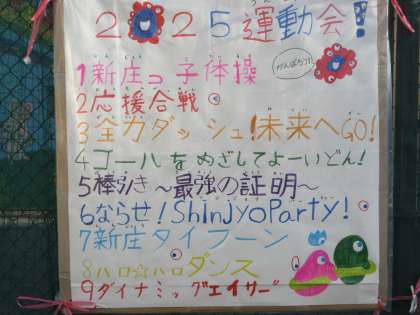 2025運動会!
がんばろう!
1新庄っ子体操
2応援合戦
3全力ダッシュ!未来へGO!
4ゴールをめざしてよーいどん!
5棒引き~最強の証明~
6ならせ!ShinJyoParty!
7新庄タイフーン
8ハロ☆ハロダンス
9ダイナミック"エイサー"